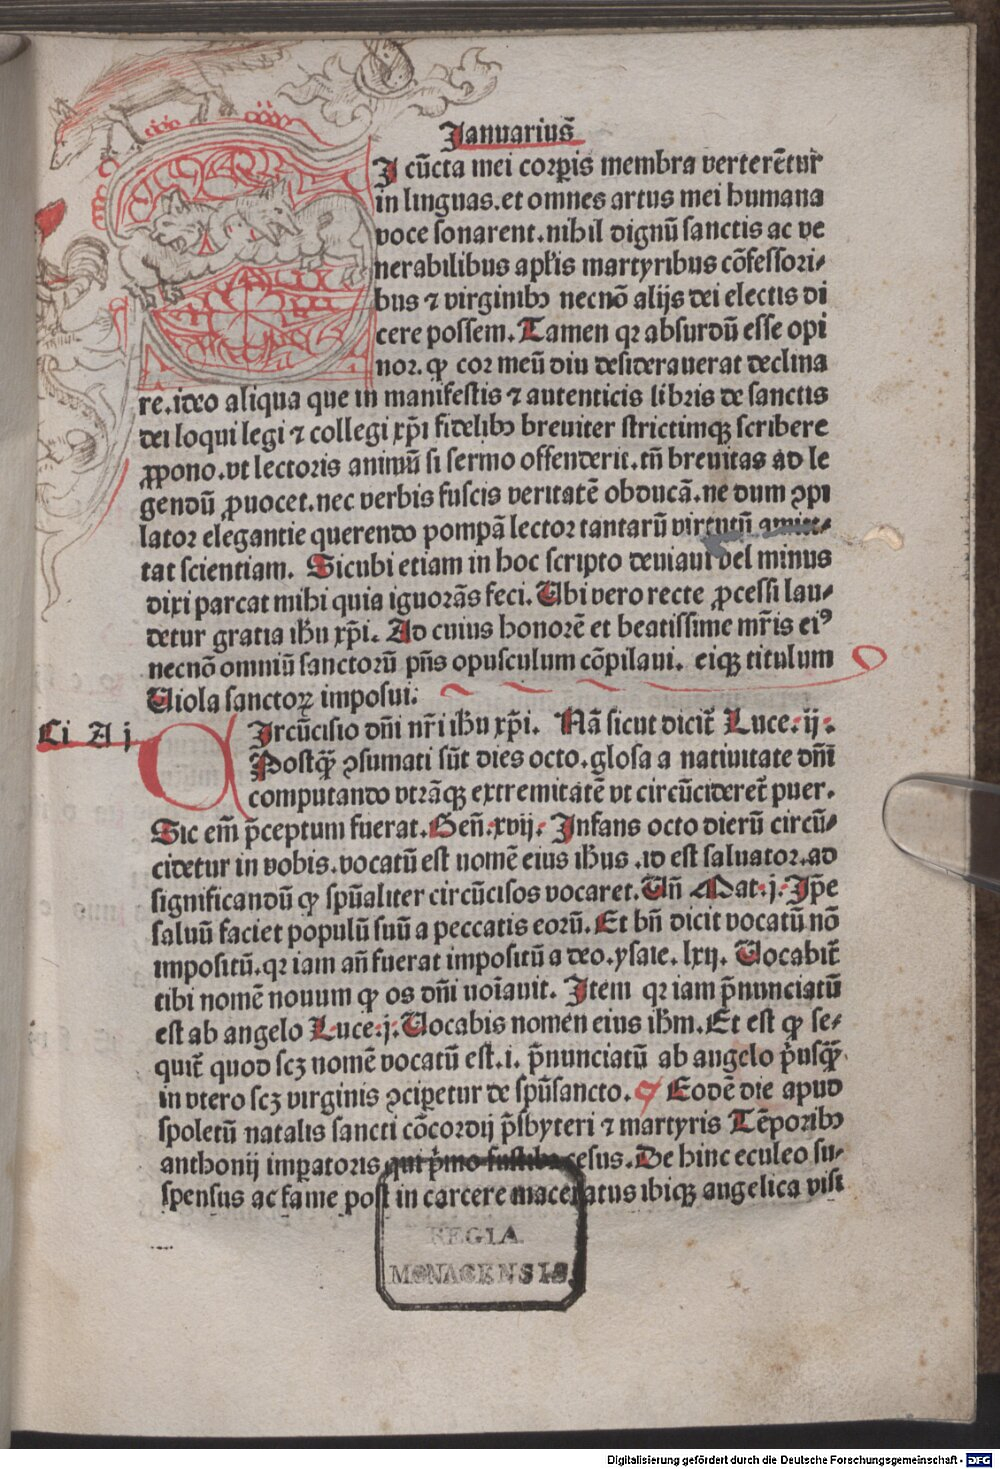 Januarius̃
I cūcta mei corꝑis membra verterēt̃
in linguas.et omnes artus mei humana
voce sonarent.nihil dignū sanctis ac ve
nerabilibus apl̓is martyribus cōfessori⸗
bus ⁊ virginibꝫ necnō alijs dei electis di
cere possem. Tamen qꝛ absurdū esse opi
nor. ꝙ cor meū diu desiderauerat declina
re.ideo aliqua que in manifestis ⁊ autenticis libris de sanctis
dei loqui legi ⁊ collegi xp̄i fidelibꝫ breuiter strictimqꝫ scribere
ꝓpono.vt lectoris animū si sermo offenderit.tn̄ breuitas ad le
gendū ꝓuocet.nec verbis fuscis veritatē obducā.ne dum ꝯpi
lator elegantie querendo pompā lector tantarū virtutū amit⸗
tat scientiam. Sicubi etiam in hoc scripto deuiaui vel minus
dixi parcat mihi quia ignorās feci. Ubi vero recte ꝓcessi lau⸗
detur gratia ih̄u xp̄i. Ad cuius honorē et beatissime mr̄is eiꝰ
necnō omniū sanctorū pn̄s opusculum cōpilaui. eiqꝫ titulum
Uiola sanctoꝝ imposui.
Ci A j
Ircūcisio dn̄i nr̄i ih̄u xp̄i. Nā sicut dicit̃ Luce.ij.
Postq̄ꝫ ꝯsumati sūt dies octo.glosa a natiuitate dn̄i
computando vtrāqꝫ extremitatē vt circūcideret̃ puer.
Sic em̄ p̄ceptum fuerat. Gen̄.xvij. Infans octo dierū circū⸗
cidetur in vobis.vocatū est nomē eius ih̄us .id est saluator.ad
significandū ꝙ spūaliter circūcisos vocaret. Un̄ Mat.j. Ip̄e
saluū faciet populū suū a peccatis eorū. Et bn̄ dicit vocatū nō
impositū.qꝛ iam an̄ fuerat impositū a deo.ysaie.lxij. Uocabit̃
tibi nomē nouum ꝙ os dn̄i noīauit. Item qꝛ iam p̄nunciatū
est ab angelo Luce.j. Uocabis nomen eius ih̄m. Et est ꝙ se⸗
quit̃ quod scꝫ nomē vocatū est.i. p̄nunciatū ab angelo p̓usq̄ꝫ
in vtero scꝫ virginis ꝯciꝑetur de spūsancto. Eodē die apud
spoletū natalis sancti cōcordij p̄sbyteri ⁊ martyris Tēporibꝫ
anthonij imꝑatoris qui p̓mo fustibꝫ cesus. De hinc eculeo su⸗
spensus ac fame post in carcere maceratus ibiqꝫ angelica visi
REGIA
MONACENSIS.
Digitalisierung gefördert durch die Deutsche Forschungsgemeinschaft - DFG